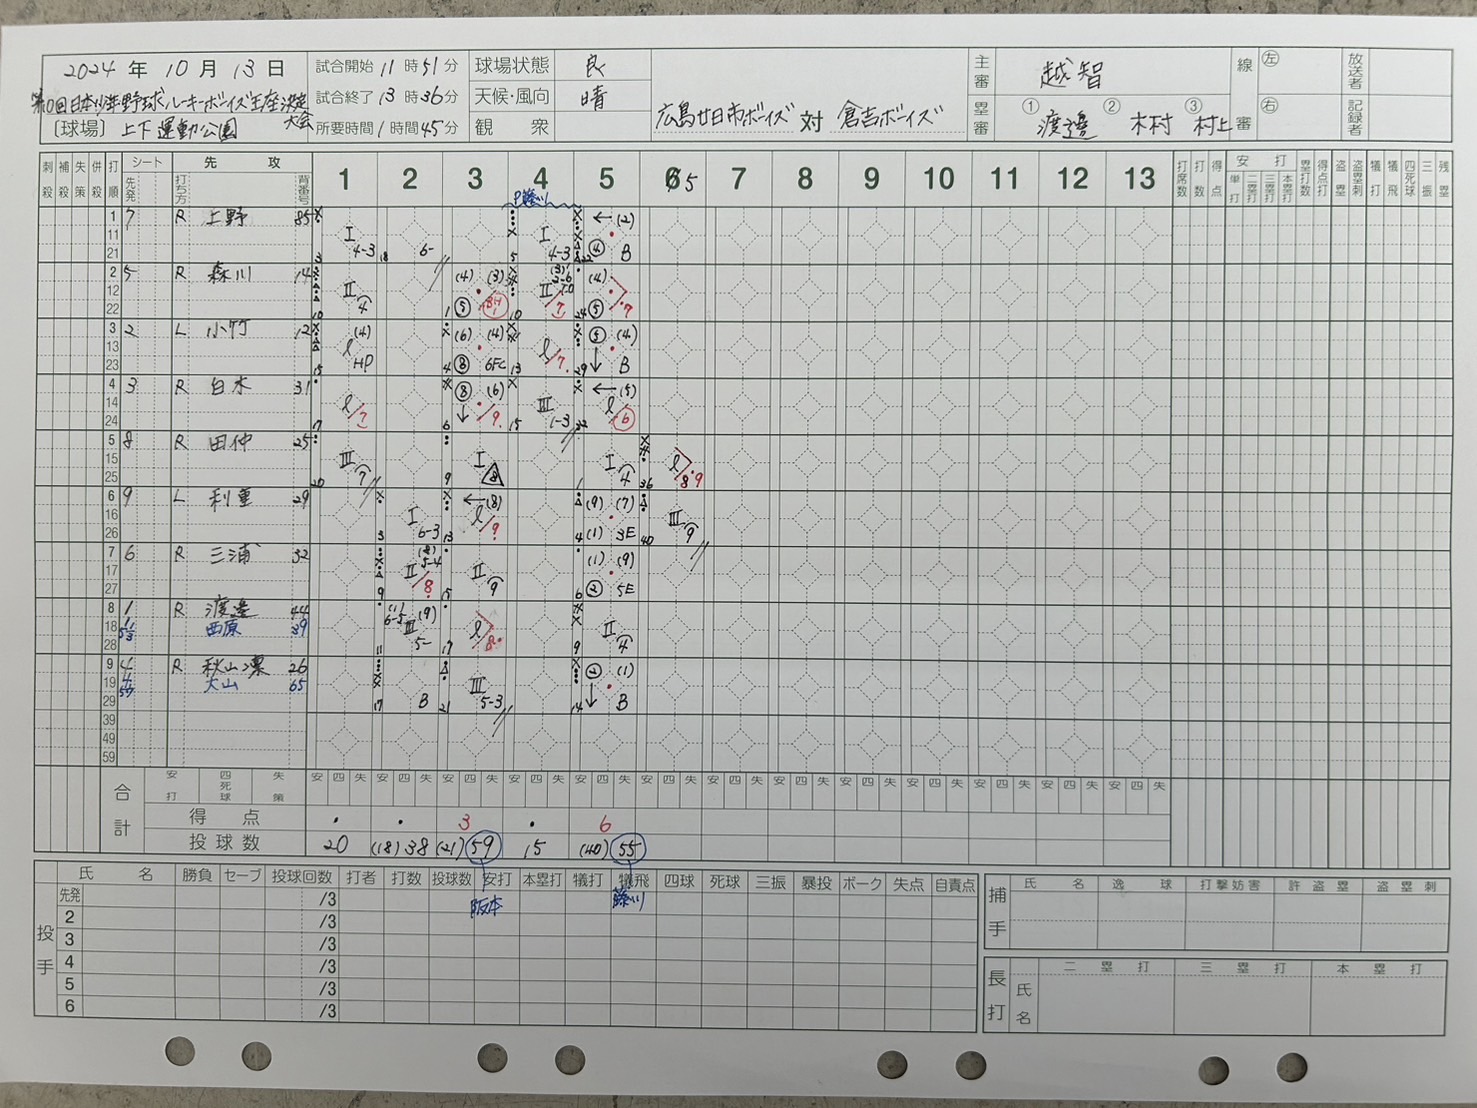 2024年10月13日
試合開始11時51分
球場状態 良
主審 越智
線
左
放送者
第10回日本少年野球ルーキーボーイズ王座決定大会
試合終了13時36分
天候・風向 晴
広島廿日市ボーイズ 対 倉吉ボーイズ
塁審 ①渡邉 ②木村 ③村上
審
右
記録者
〔球場〕上下運動公園
所要時間1時間45分
観衆
刺殺 補殺 失策 併殺 打順 シート 先発 先攻 打ち方 背番号
1 2 3 4 5 6 5 7 8 9 10 11 12 13
打席数 打数 得点 安打 単打 二塁打 三塁打 本塁打 塁打数 得点打 盗塁 盗塁刺 犠打 犠飛 四死球 三振 残塁
1 11 21 7 R 上野 85
I 4-3 6- I 4-3 ← (2) ④ B
2 12 22 5 R 森川 14
II 4 (4) (3) ⑤ BH II 7 (4) ⑤ 7
3 13 23 2 L 小竹 12
l (4) HP (6) (4) ⑧ 6FC l 7 ⑤ (4) ↓ B
4 14 24 3 R 白木 31
l 7 ⑧ (6) ↓ 9 III 1-3 ← (5) l 6
5 15 25 8 R 田仲 25
III 7 I 8 I 4 l 8 9
6 16 26 9 L 利重 29
I 6-3 ← (8) l 9 (9) (7) (1) 3E III 9
7 17 27 6 R 三浦 32
II 5-4 8 II 9 (1) (9) ② 5E
8 18 28 1 R 渡邉 44
西原 39
6-5 (9) III 5- l 8 II 4
9 19 29 4 R 秋山凛 26
大山 65
B III 5-3 ② (1) ↓ B
39
49
59
合計 安打 四死球 失策
安 四 失 安 四 失 安 四 失 安 四 失 安 四 失 安 四 失 安 四 失 安 四 失 安 四 失 安 四 失 安 四 失 安 四 失 安 四 失
得点 ・ ・ 3 ・ 6
投球数 20 (18) 38 (21) 59 15 (40) 55
投手 氏名 勝負 セーブ 投球回数 打者 打数 投球数 安打 本塁打 犠打 犠飛 四球 死球 三振 暴投 ボーク 失点 自責点
先発 /3 阪本 藤川
2 /3
3 /3
4 /3
5 /3
6 /3
捕手 氏名 逸球 打撃妨害 許盗塁 盗塁刺
長打 氏名 二塁打 三塁打 本塁打